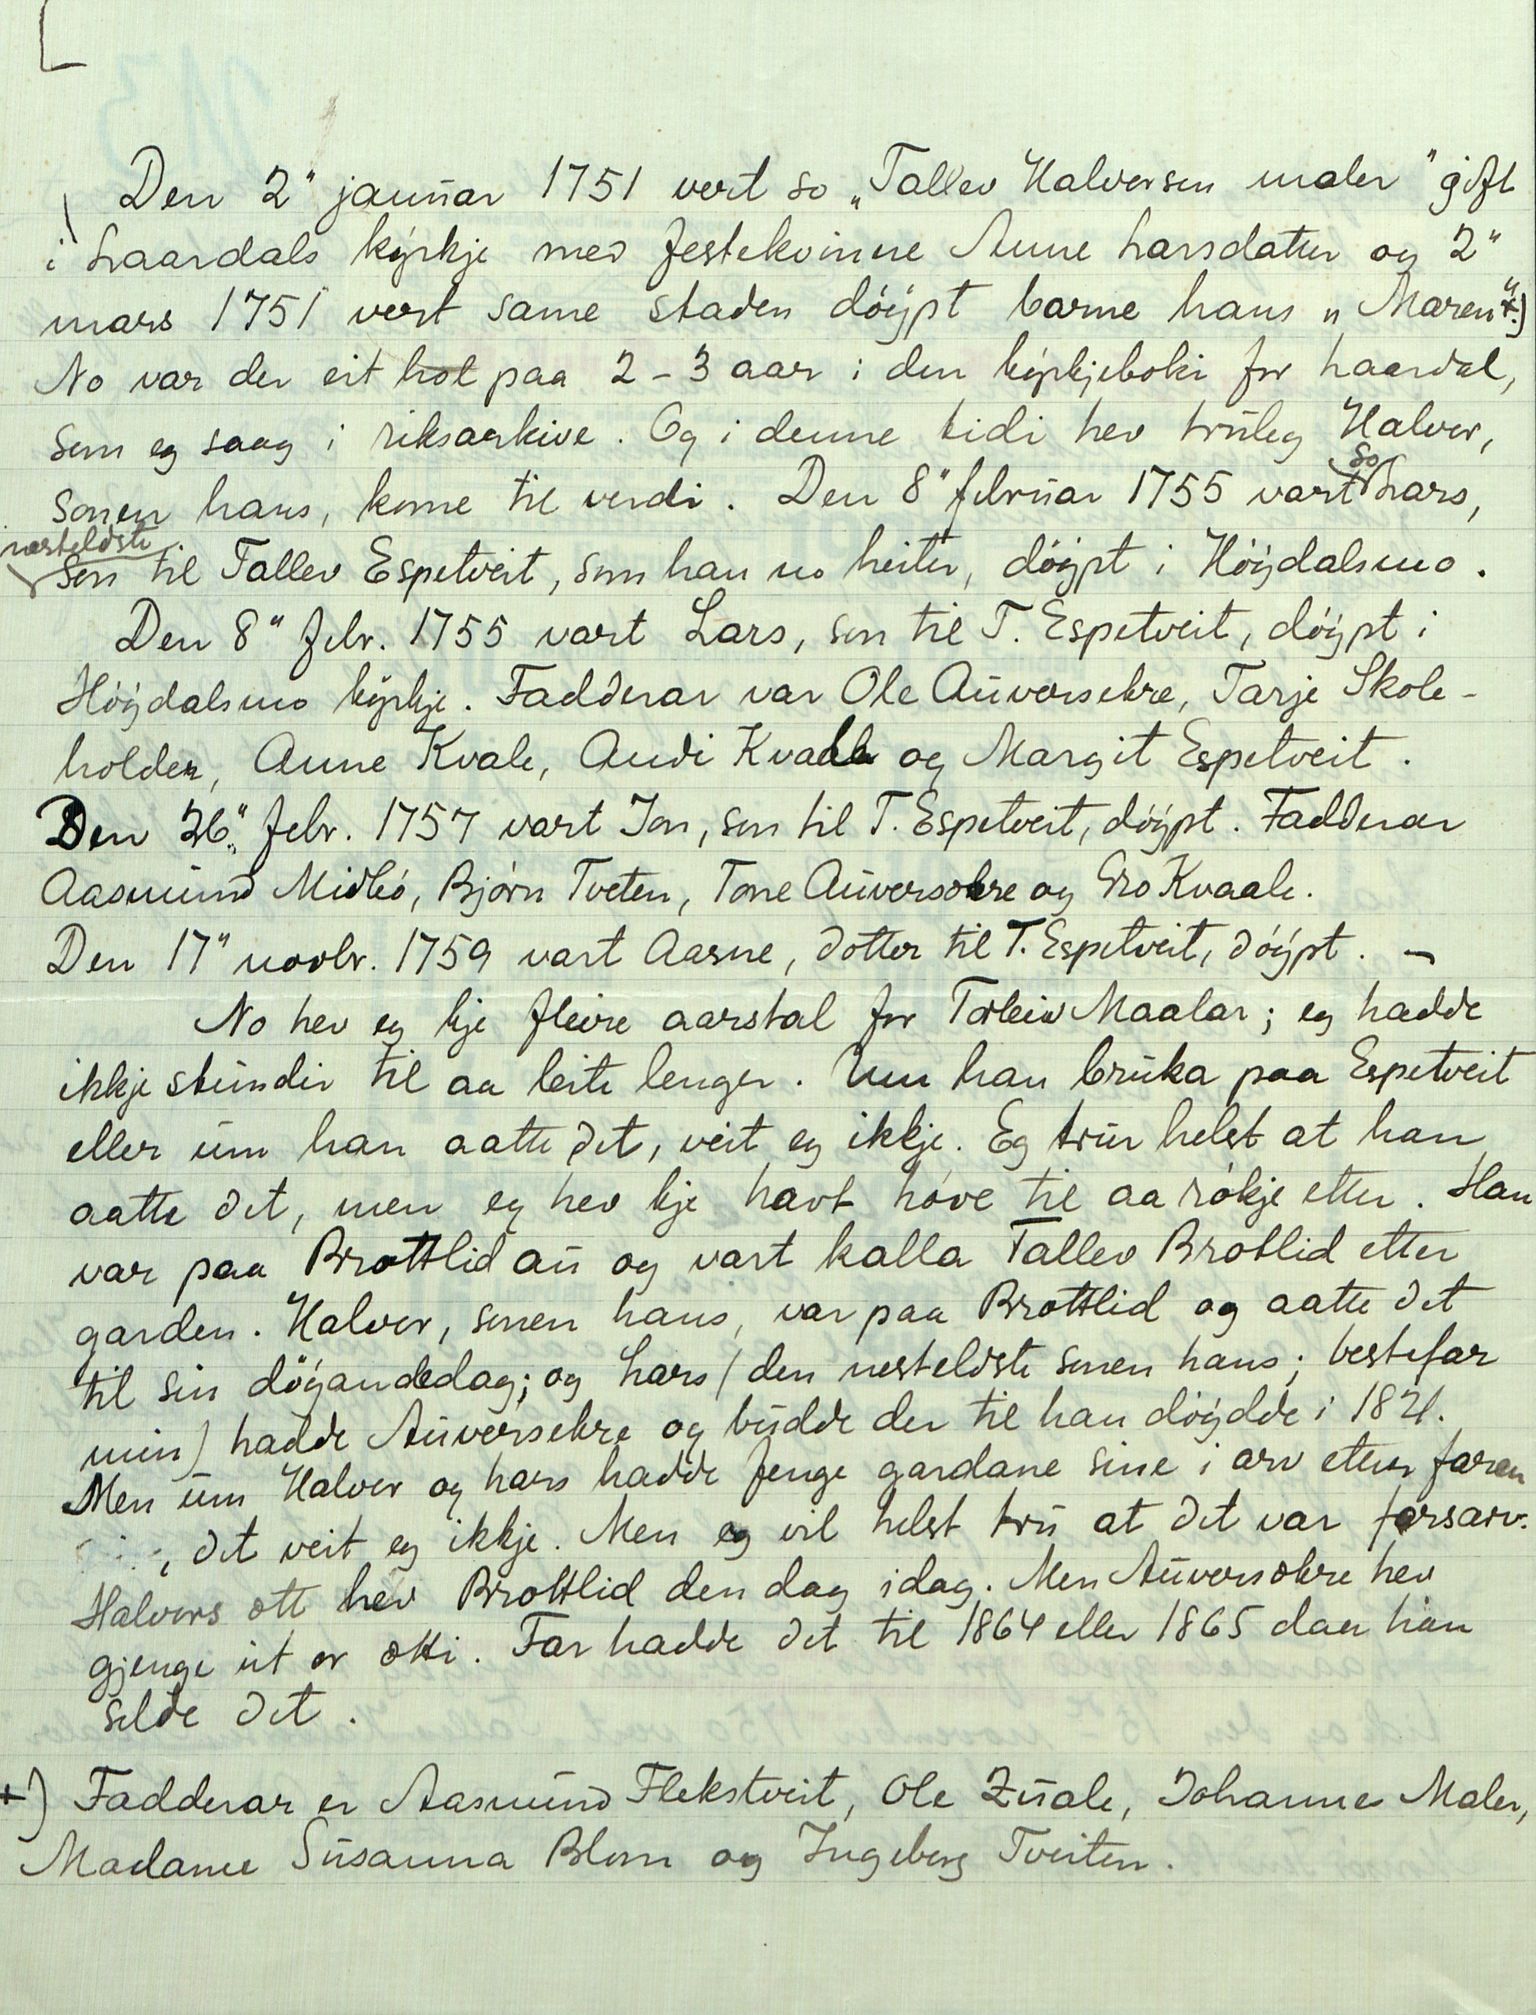 Den 2" januar 1751 vert so „Tallev Halversen maler" gift
i Laardals kyrkje med festekvinne Anne Larsdatter og 2"
mars 1751 vert same staden döypt barne hans „Maren" +)
No var der eit hol paa 2-3 aar i den kyrkjeboki for Laardal,
som eg saag i riksarkive. Og i denne tidi hev truleg Halvor,
sonen hans, kome til verdi. Den 8" februar 1755 vart so Lars,
nesteldste
son til Tallev Espetveit, som han no heiter, döypt i Höydalsmo.
Den 8" febr. 1755 vart Lars, son til T. Espetveit, döypt i
Höydalsmo kyrkje. Fadderar var Ole Auversekre, Tarje Skole-
holder, Anne Kvale, Audi Kvaale og Margit Espetveit.
Den 26." febr. 1757 vart Jon, son til T. Espetveit, döypt. Fadderar
Aasmund Midbö, Björn Tveten, Tone Auversekre og Gro Kvaale.
Den 17" novbr. 1759 vart Aasne, dotter til T. Espetveit, döypt. –
No hev eg kje fleire aarstal for Torleiv Maalar; eg hadde
ikkje stundir til aa leite lenger. Um han bruka paa Espetveit
eller um han aatte det, veit eg ikkje. Eg trur helst at han
aatte det, men eg hev kje havt höve til aa rökje etter. Han
var paa Brottlid au og vart kalla Tallev Brotlid etter
garden. Halvor, sonen hans, var paa Brottlid og aatte det
til sin döyandedag; og Lars (den nesteldste sonen hans; bestefar
min) hadde Auversekre og budde der til han döydde i 1821.
Men um Halvor og Lars hadde fenge gardane sine i arv etter faren
, det veit eg ikkje. Men eg vil helst tru at det var farsarv.
Halvors ætt hev Brottlid den dag idag. Men Auversekre hev
gjenge ut or ætti. Far hadde det til 1864 eller 1865 daa han
selde det.
+) Fadderar er Aasmund Flekstveit, Ole Zuale, Johannes Maler,
Madame Susanna Blom og Ingeborg Tveiten.